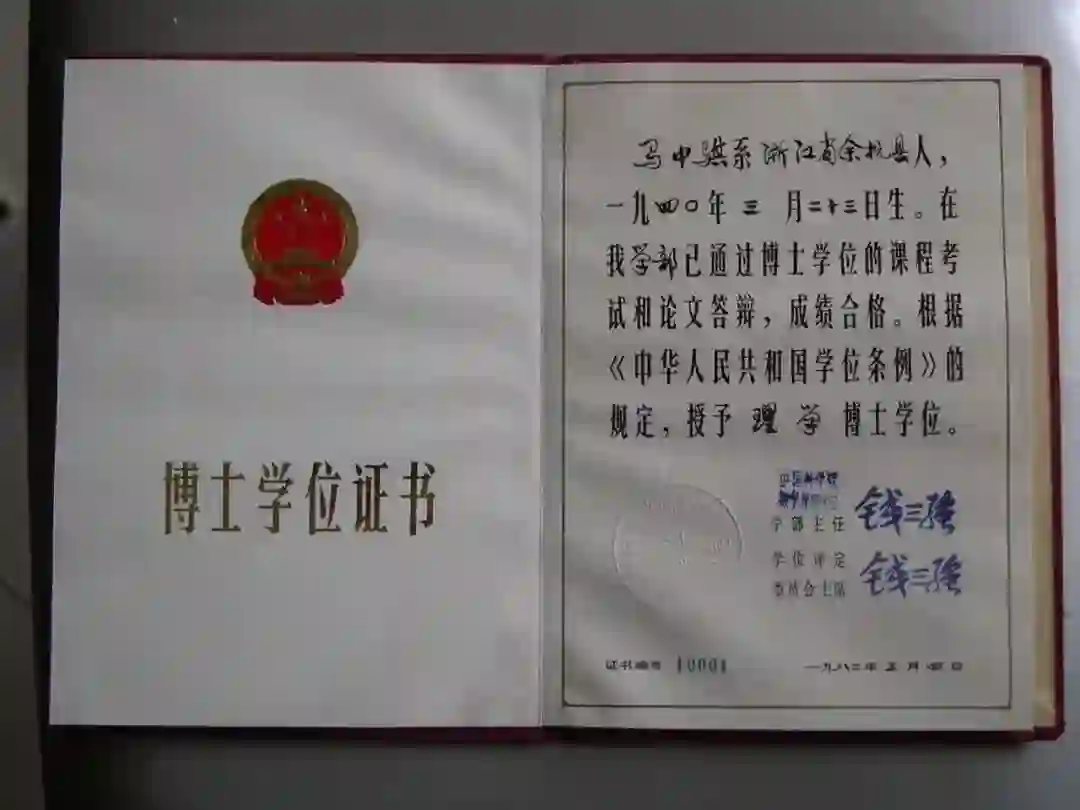 博士学位证书
马中骐系浙江省余杭县人，
一九四〇年三月二十三日生。在
我学部已通过博士学位的课程考
试和论文答辩，成绩合格。根据
《中华人民共和国学位条例》的
规定，授予理学博士学位。
中国科学院
学部主任 钱三强
学位评定
委员会主席 钱三强
证书编号 10001
一九八二年 月 日